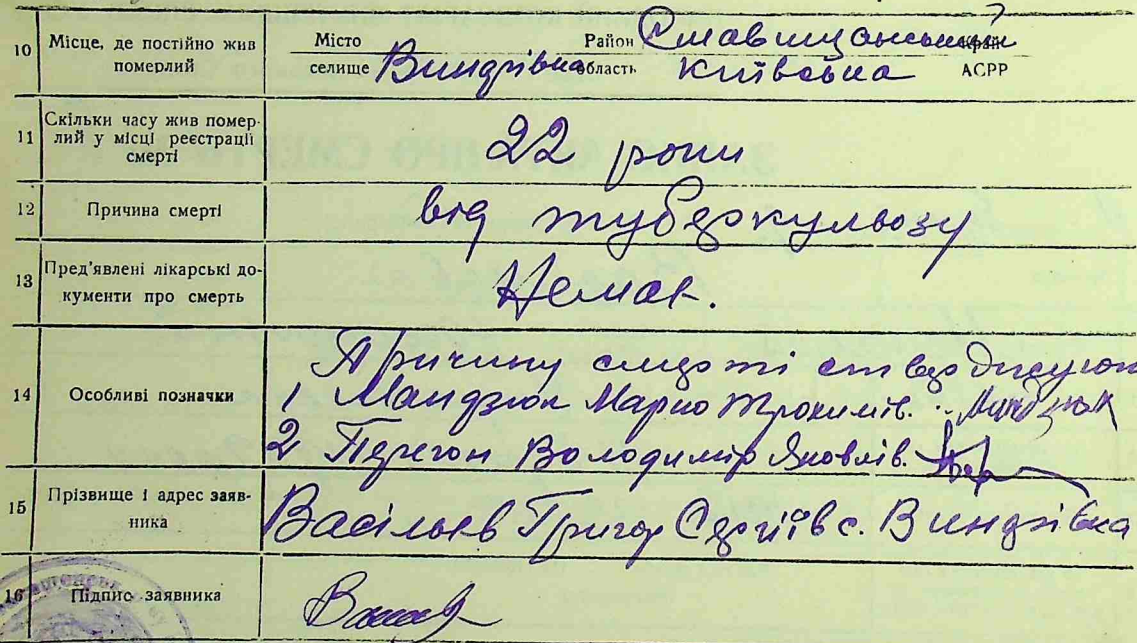 10 Місце, де постійно жив померлий Місто селище Винарівка Район Ставищанський край область Київська АСРР
11 Скільки часу жив помер-
лий у місці реєстрації
смерті 22 роки
12 Причина смерті від туберкульозу
13 Пред'явлені лікарські до-
кументи про смерть Немає.
14 Особливі позначки Причину смерті стверджують
1 Мандзюк Марко Трохимів.
2 Перегон Володимир Яковлів.
15 Прізвище і адрес заяв-
ника Васільєв Григор Сергіїв с. Винарівка
16 Підпис заявника